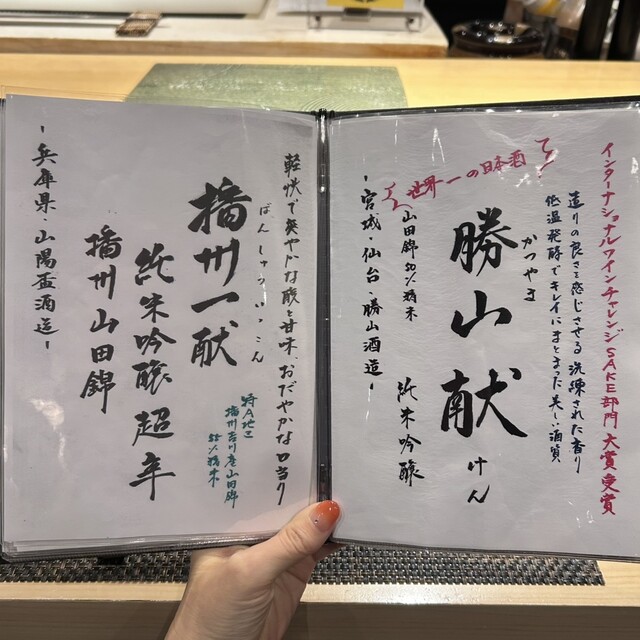 インターナショナルワインチャレンジSAKE部門 大賞受賞
造りの良さを感じさせる 洗練された香り
低温発酵でキレイにまとまった美しい酒質
世界一の日本酒
勝山 献
かつやま
けん
山田錦50%精米
純米吟醸
-宮城・仙台・勝山酒造-
軽快で爽やかな酸と甘味、おだやかな口当り
播州一献
ばんしゅういっこん
特A地区
播州吉川産山田錦
55%精米
純米吟醸 超辛
播州山田錦
-兵庫県・山陽盃酒造-